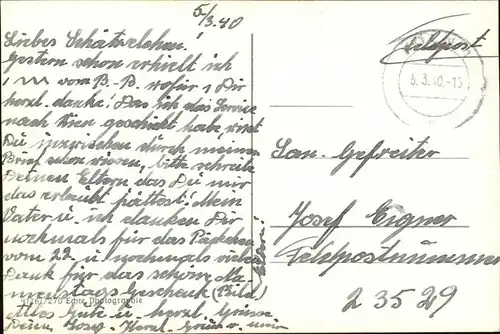 5/3.40
Liebes Schätzelchen!
Gestern schon erhielt ich
vom B.-B. wofür Dir
herzl. danke. Das ich das Service
nach Wien geschickt habe wirst
Du inzwischen durch meinen
Brief schon wissen, bitte schreibe
Deinen Eltern das Du mir
das erlaubt hattest. Mein
Vater u. ich danken Dir
nochmals für das Päckchen
vom 22. u. nochmals vielen
Dank für das schöne Na-
menstags Geschenk (Bild)
Alles Gute u. herzl. Grüsse
Deine
Echte Photographie
Feldpost
5.3.40.-13
San. Gefreiter
Josef Eigner
Feldpostnummer
23529